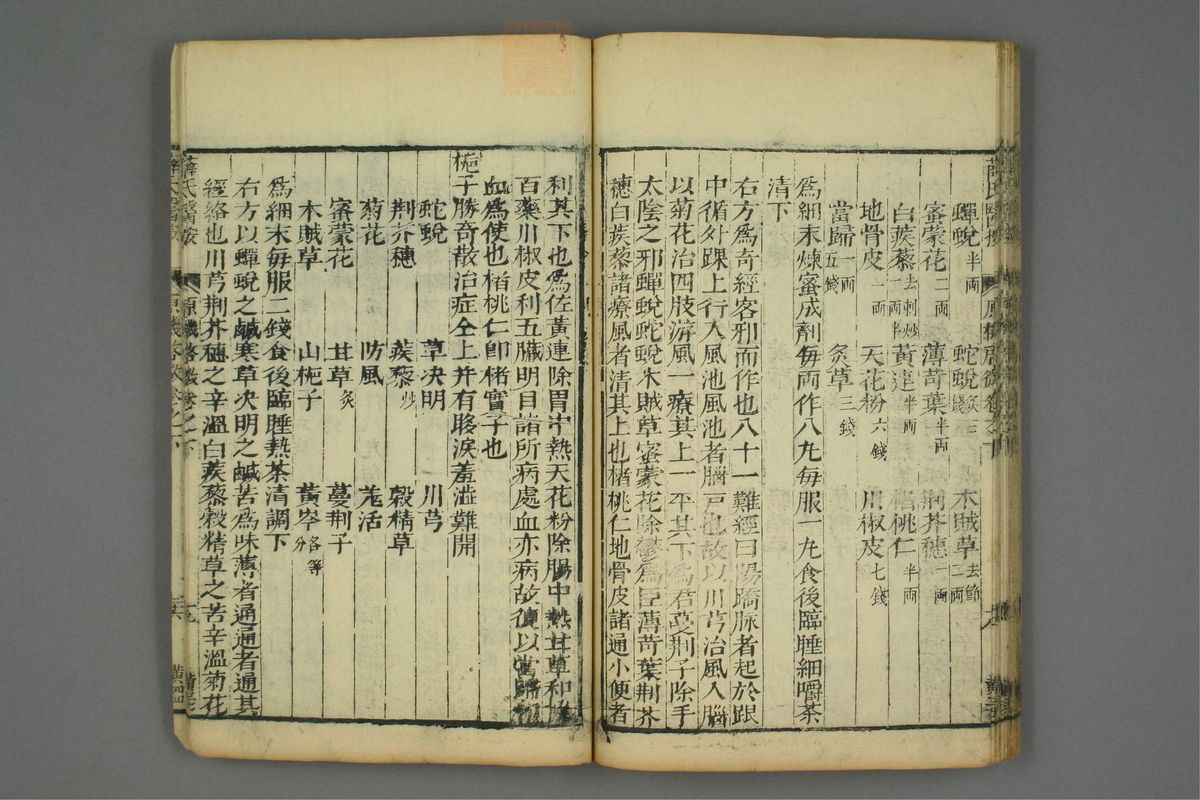 蟬蛻半兩 蛇蛻炙三錢 木賊草去節二兩
蜜蒙花二兩 薄苛葉半兩 荆芥穗一兩
白蒺藜去刺炒一兩半 黃連半兩 楮桃仁半兩
地骨皮一兩 天花粉六錢 川椒皮七錢
當歸一兩五錢 炙草三錢
爲細末煉蜜成劑毎両作八丸毎服一丸食後臨睡細嚼茶
清下
右方爲奇經客邪而作也八十一難經曰陽蹻脉者起於跟
中循外踝上行入風池風池者腦戸也故以川芎治風入腦
以菊花治四肢游風一療其上一平其下爲君蔓荆子除手
太陰之邪蟬蛻蛇蛻木賊草蜜蒙花除鬱爲臣薄苛葉荆芥
穗白蒺藜諸療風者清其上也楮桃仁地骨皮諸通小便者
利其下也爲佐黃連除胃中熱天花粉除腸中熱甘草和
百藥川椒皮利五臟明目諸所病處血亦病故復以當歸和
血爲使也楮桃仁卽楮實子也
梔子勝奇散治症仝上并有眵淚羞澁難開
蛇蛻 草决明 川芎
荆芥穗 蒺藜炒 穀精草
菊花 防風 羌活
蜜蒙花 甘草炙 蔓荆子
木賊草 山梔子 黃芩各等分
爲細末毎服二錢食後臨睡熱茶清調下
右方以蟬蛻之鹹寒草决明之鹹苦爲味薄者通通者通其
經絡也川芎荆芥穗之辛溫白蒺藜穀精草之苦辛溫菊花
薛氏醫按 原機啓微卷之下